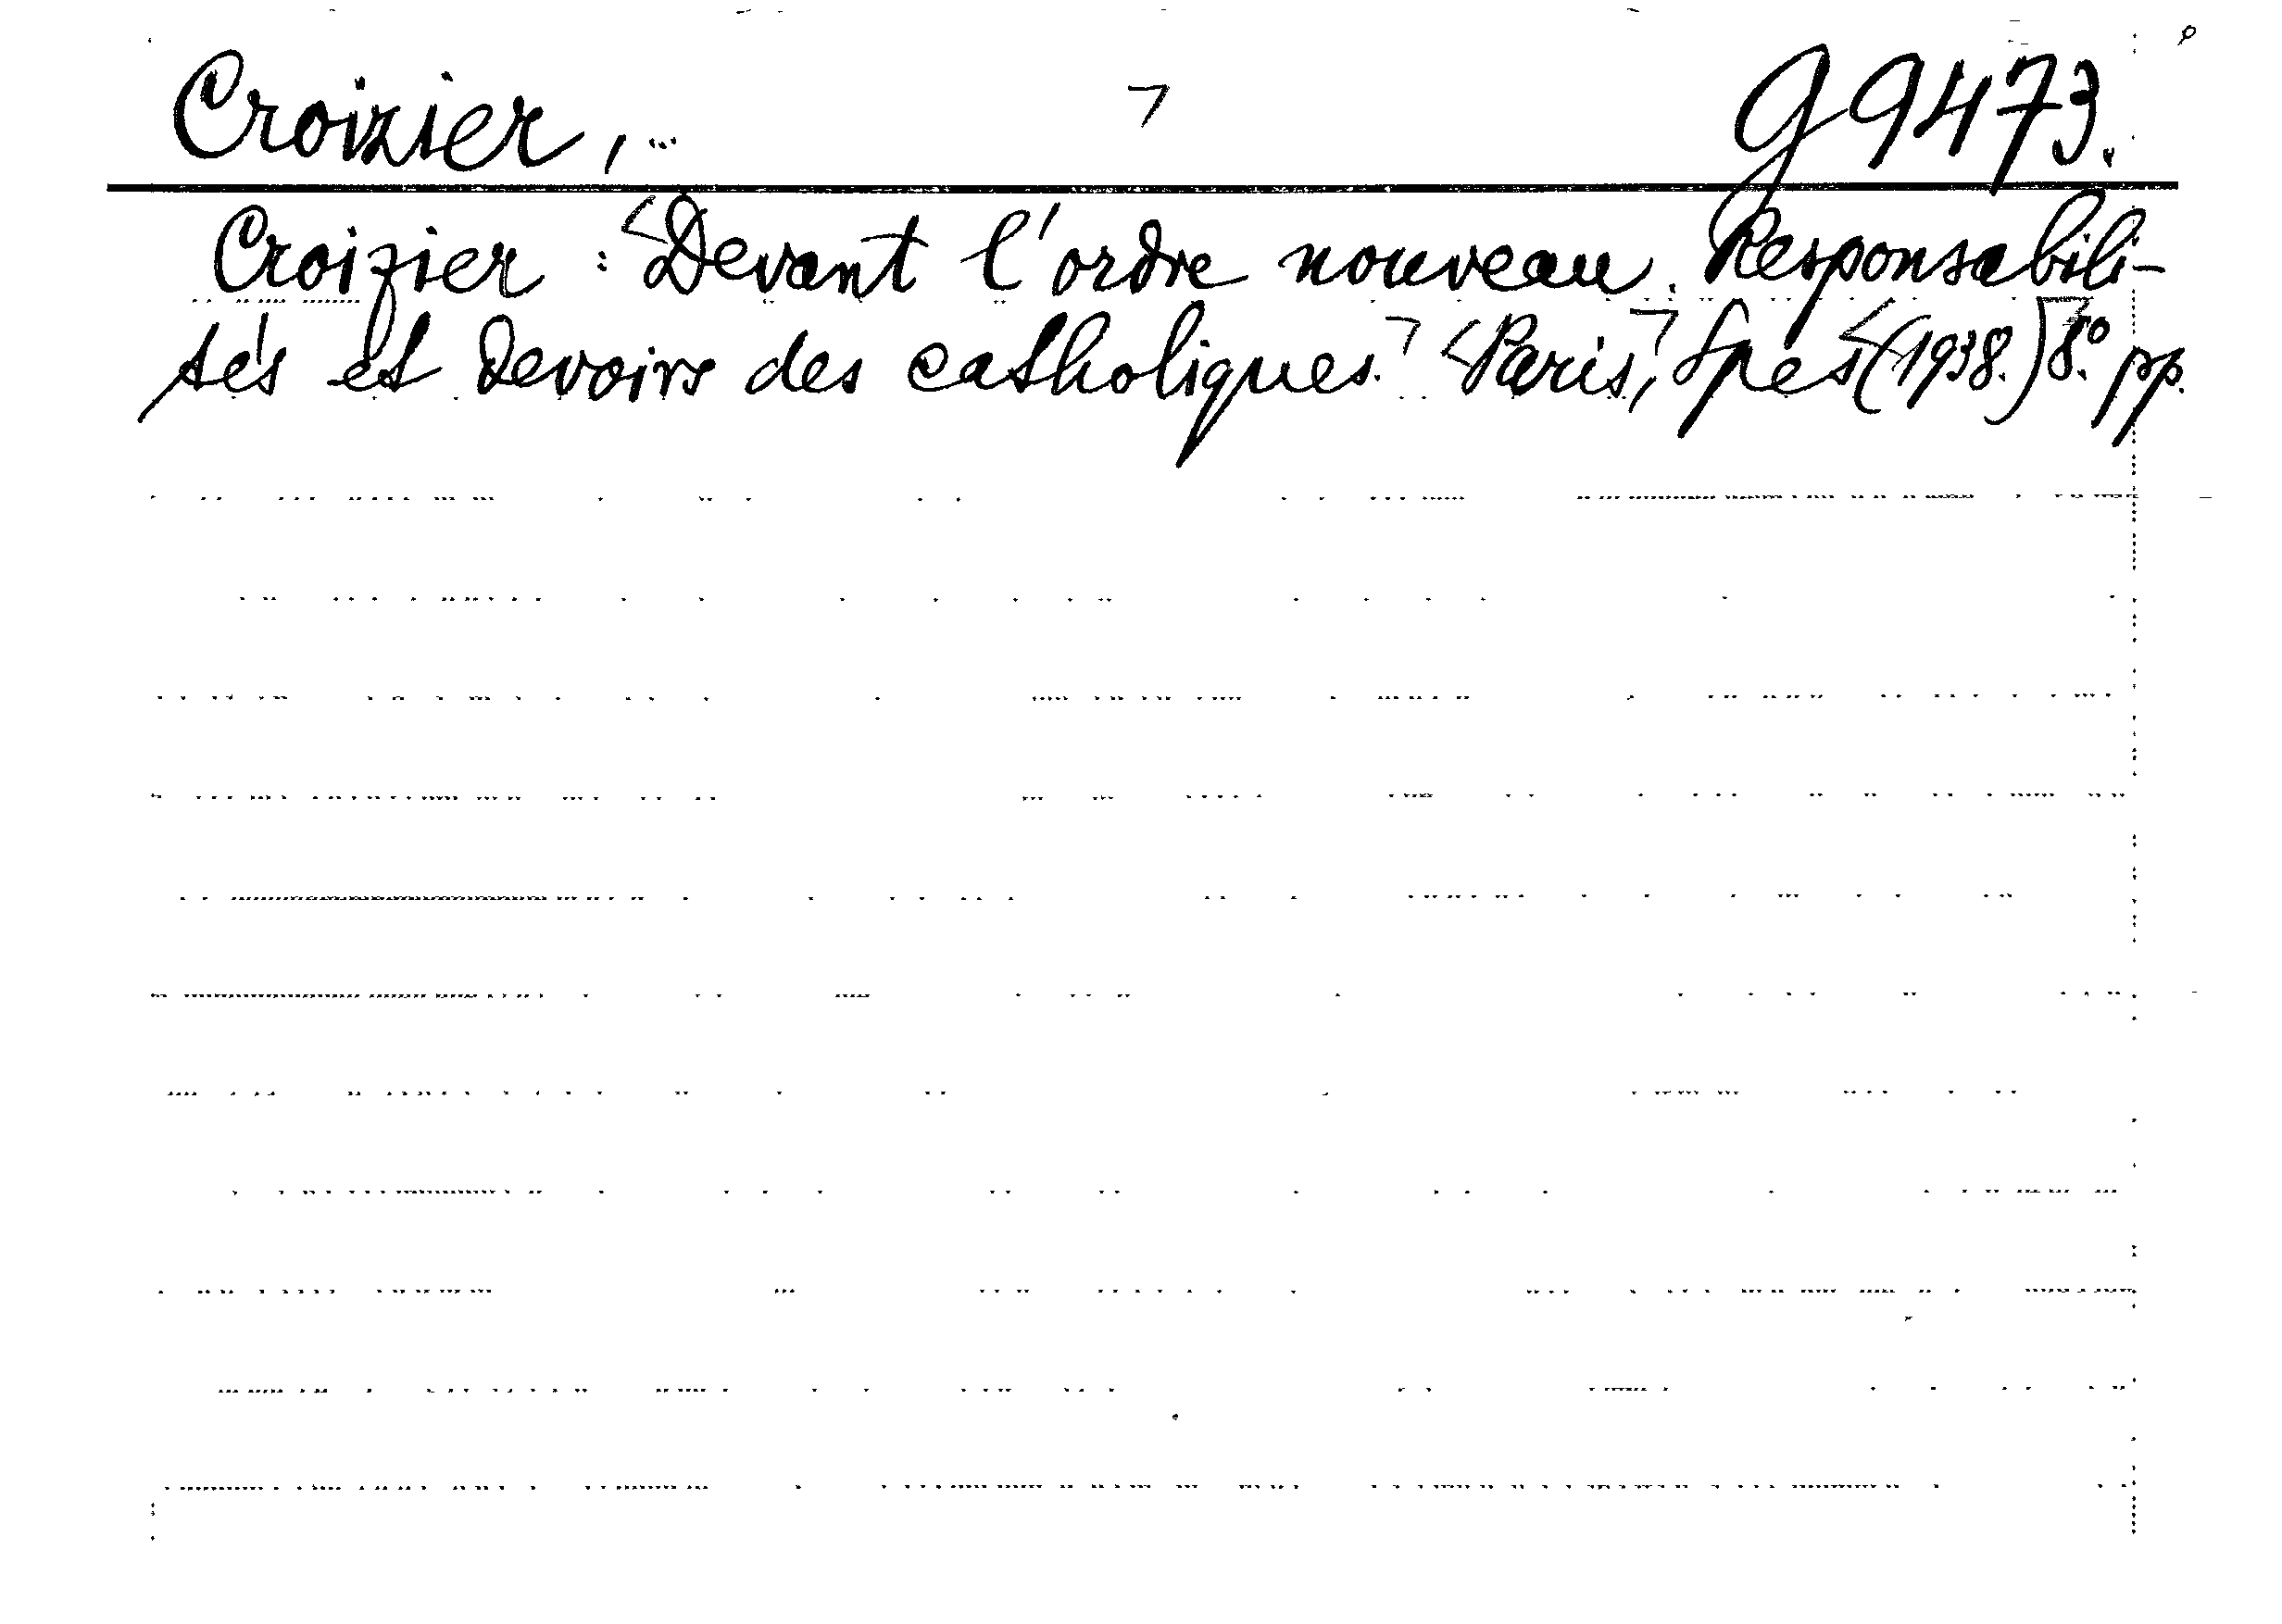 Croizier, ... G 9473.
Croizier : Devant l'ordre nouveau. Responsabili-
tés et devoirs des catholiques. Paris, Spes (1938.) 8.° pp.